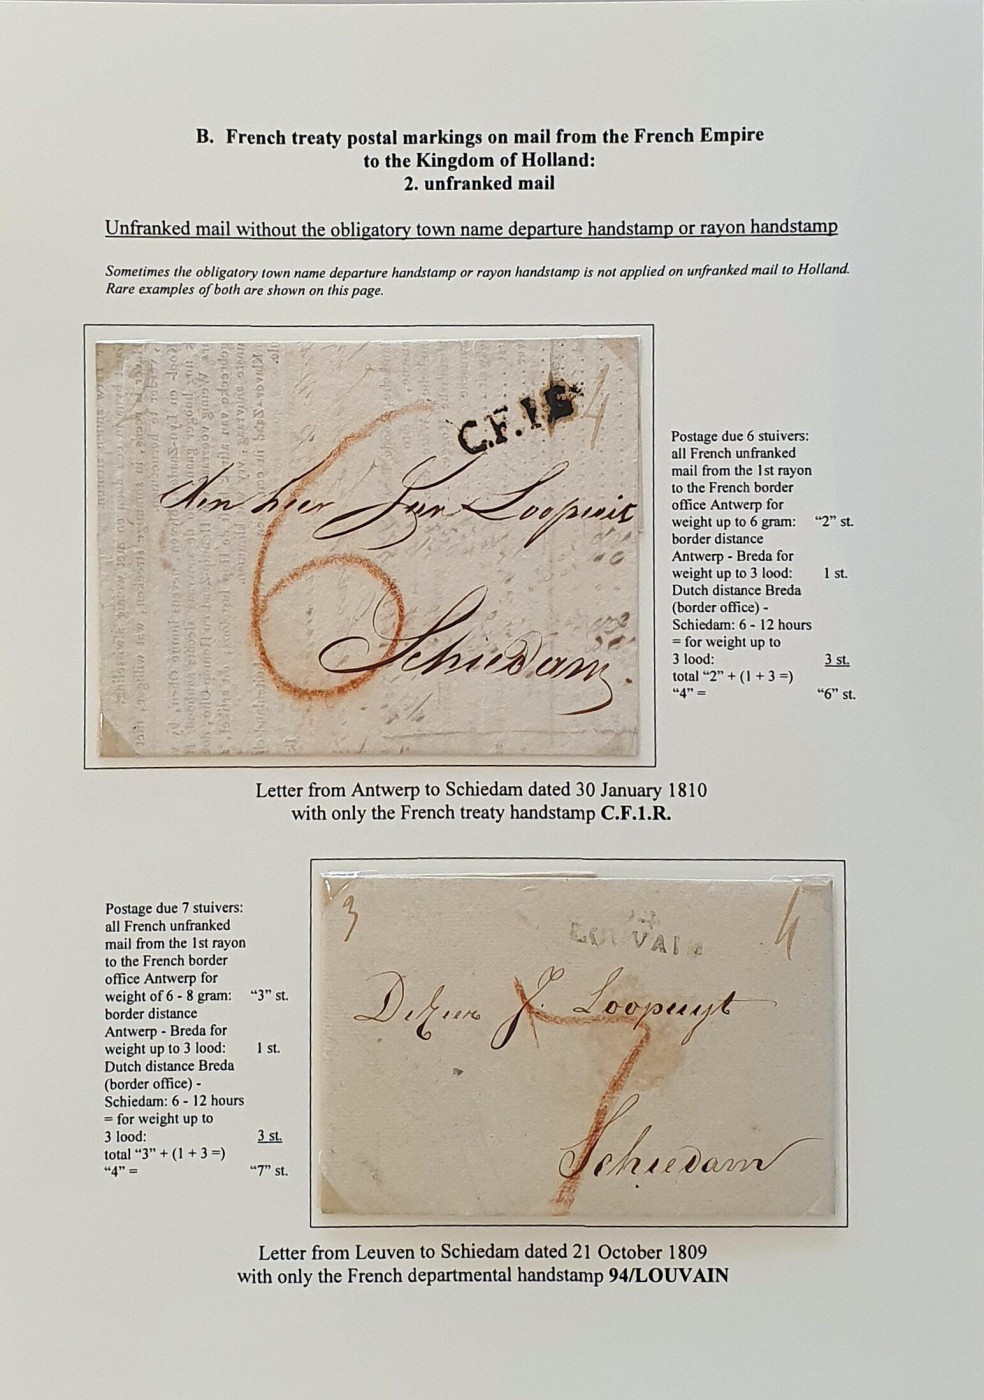 B. French treaty postal markings on mail from the French Empire
to the Kingdom of Holland:
2. unfranked mail
Unfranked mail without the obligatory town name departure handstamp or rayon handstamp
Sometimes the obligatory town name departure handstamp or rayon handstamp is not applied on unfranked mail to Holland.
Rare examples of both are shown on this page.
C.F.1.R.
4
6
Jan Loopuit
Schiedam
Postage due 6 stuivers:
all French unfranked
mail from the 1st rayon
to the French border
office Antwerp for
weight up to 6 gram: “2” st.
border distance
Antwerp - Breda for
weight up to 3 lood: 1 st.
Dutch distance Breda
(border office) -
Schiedam: 6 - 12 hours
= for weight up to
3 lood: 3 st.
total “2” + (1 + 3 =)
“4” = “6” st.
Letter from Antwerp to Schiedam dated 30 January 1810
with only the French treaty handstamp C.F.1.R.
Postage due 7 stuivers:
all French unfranked
mail from the 1st rayon
to the French border
office Antwerp for
weight of 6 - 8 gram: “3” st.
border distance
Antwerp - Breda for
weight up to 3 lood: 1 st.
Dutch distance Breda
(border office) -
Schiedam: 6 - 12 hours
= for weight up to
3 lood: 3 st.
total “3” + (1 + 3 =)
“4” = “7” st.
3
LOUVAIN
4
J. Loopuyt
7
Schiedam
Letter from Leuven to Schiedam dated 21 October 1809
with only the French departmental handstamp 94/LOUVAIN